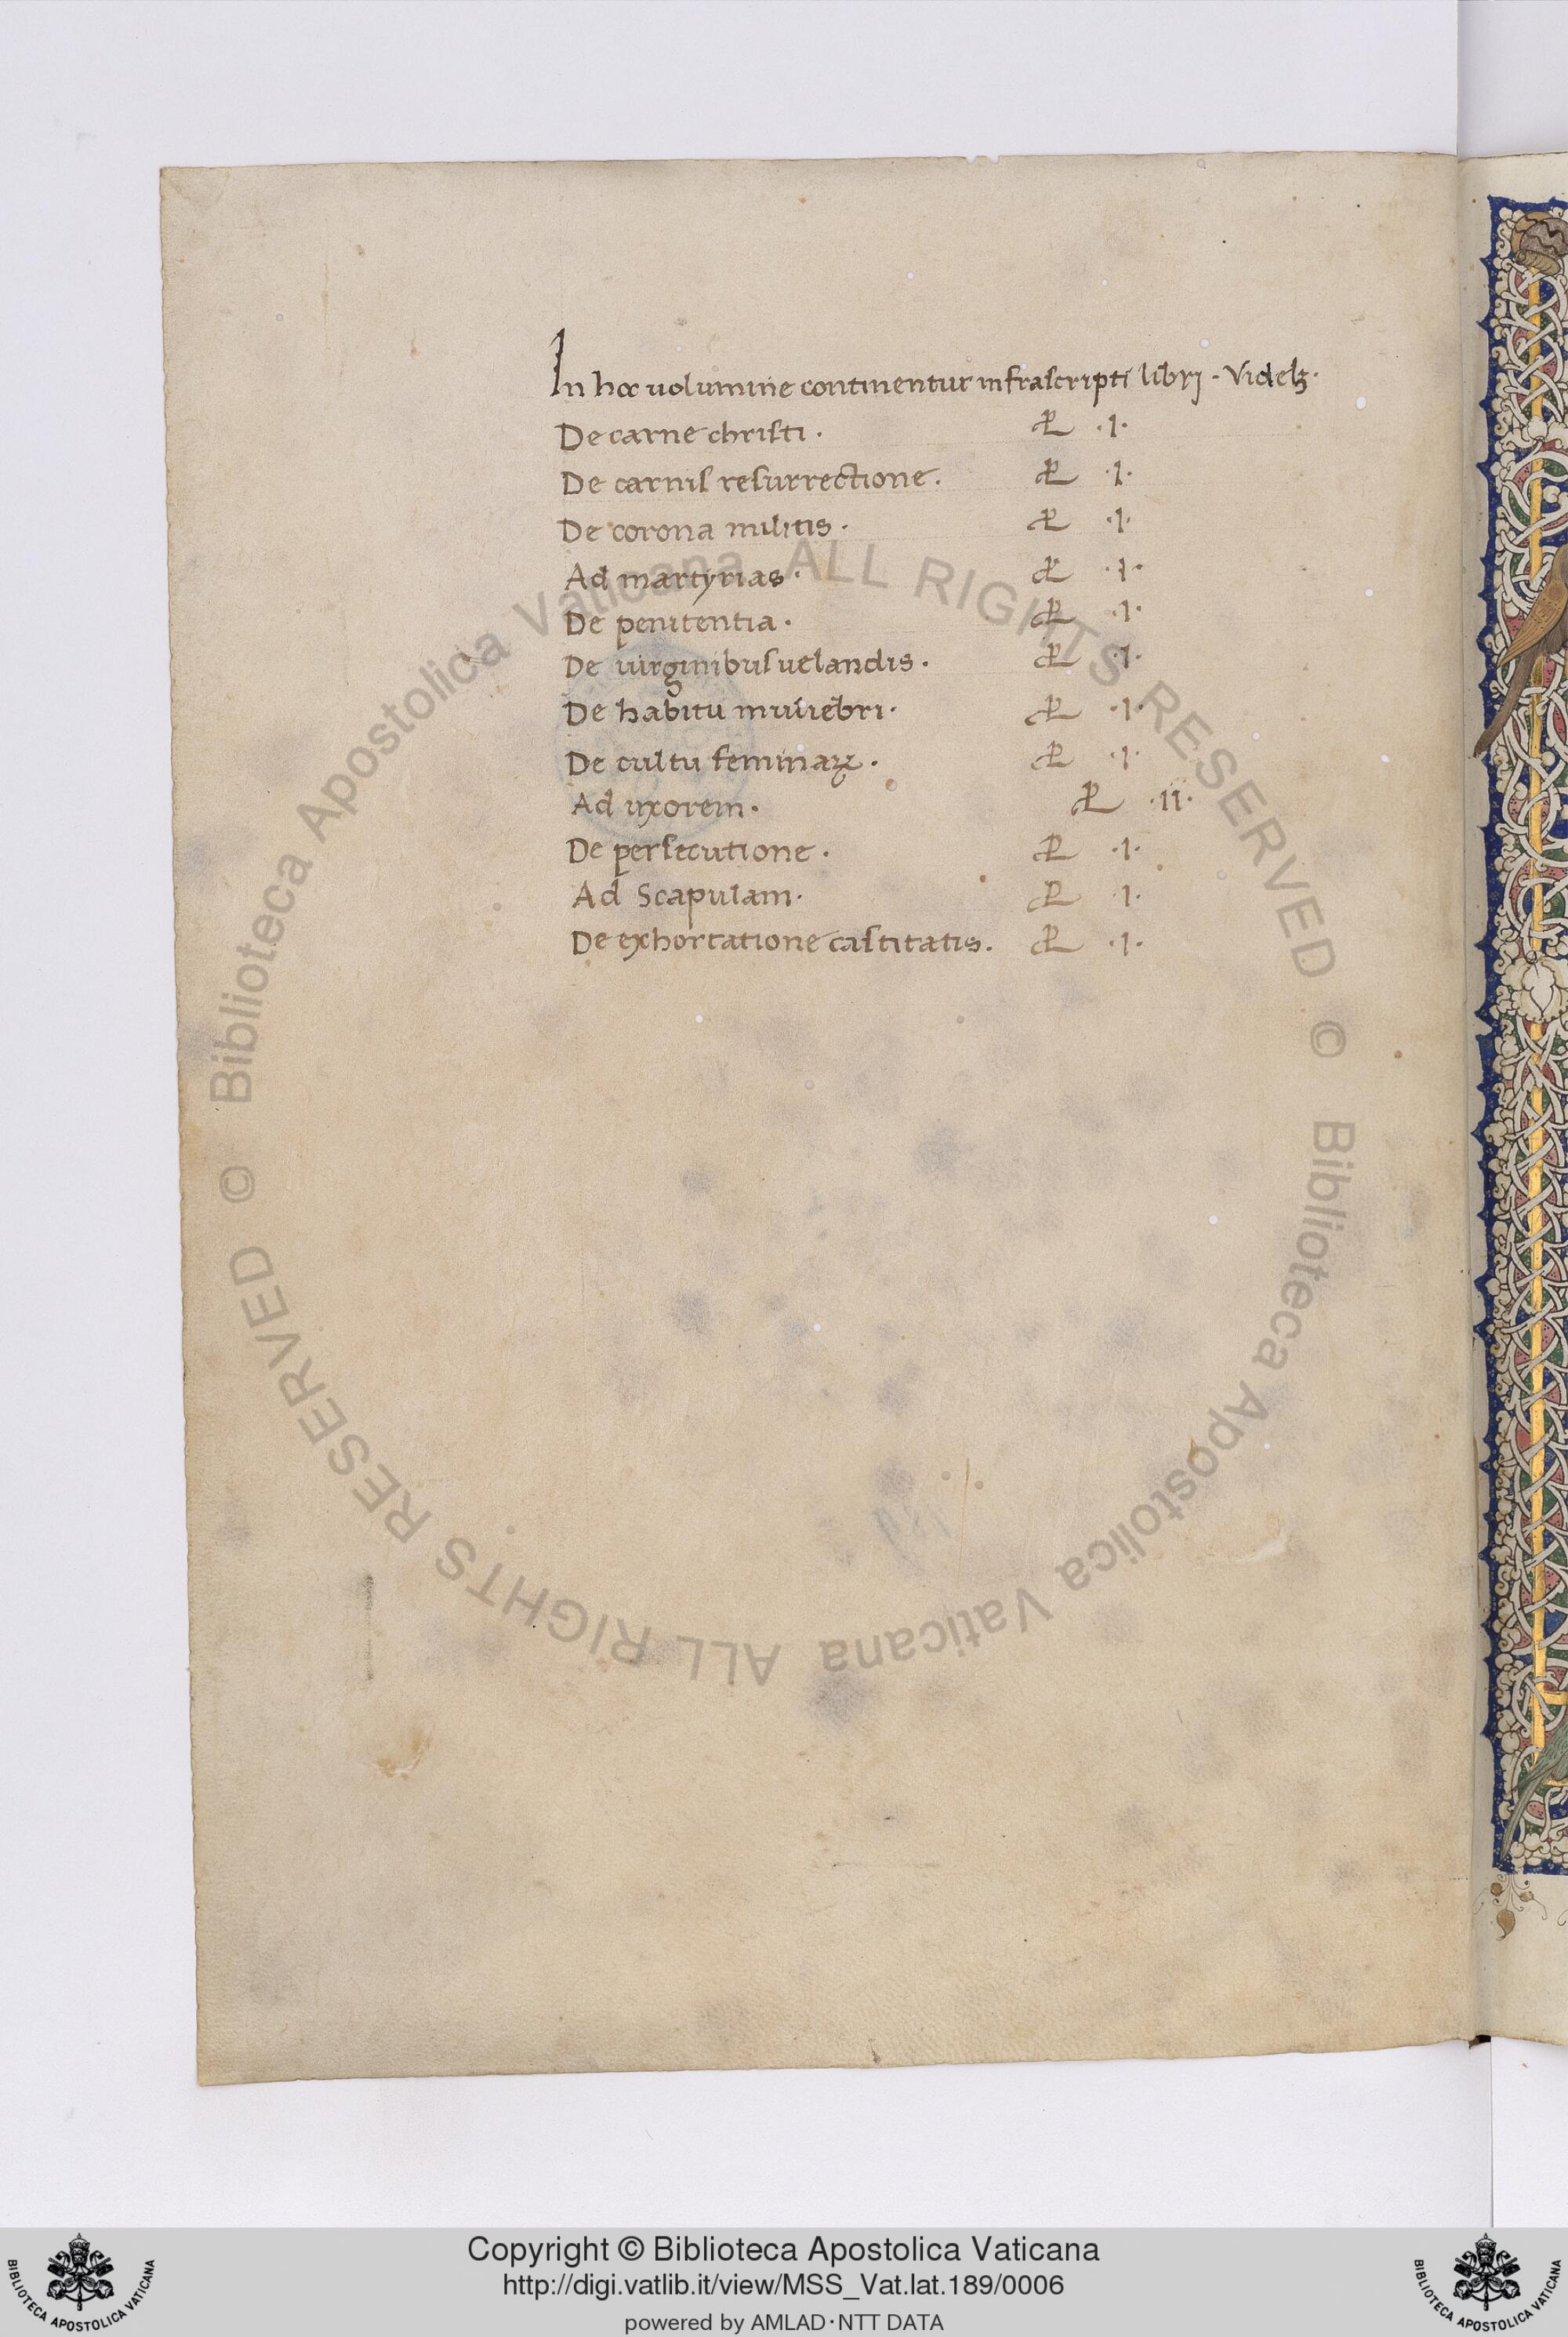 In hoc uolumine continentur infrascripti libri · Videlꝫ·
De carne christi · ·I·
De carnis resurrectione · ·I·
De corona militis · ·I·
Ad martyrias · ·I·
De penitentia · ·I·
De uirginibus uelandis · ·I·
De habitu muliebri · ·I·
De cultu feminaꝝ · ·I·
Ad uxorem · ·II·
De persecutione · ·I·
Ad Scapulam · ·I·
De exhortatione castitatis · ·I·
© Biblioteca Apostolica Vaticana ALL RIGHTS RESERVED
© Biblioteca Apostolica Vaticana ALL RIGHTS RESERVED
Copyright © Biblioteca Apostolica Vaticana
http://digi.vatlib.it/view/MSS_Vat.lat.189/0006
powered by AMLAD·NTT DATA
BIBLIOTECA APOSTOLICA VATICANA
BIBLIOTECA APOSTOLICA VATICANA